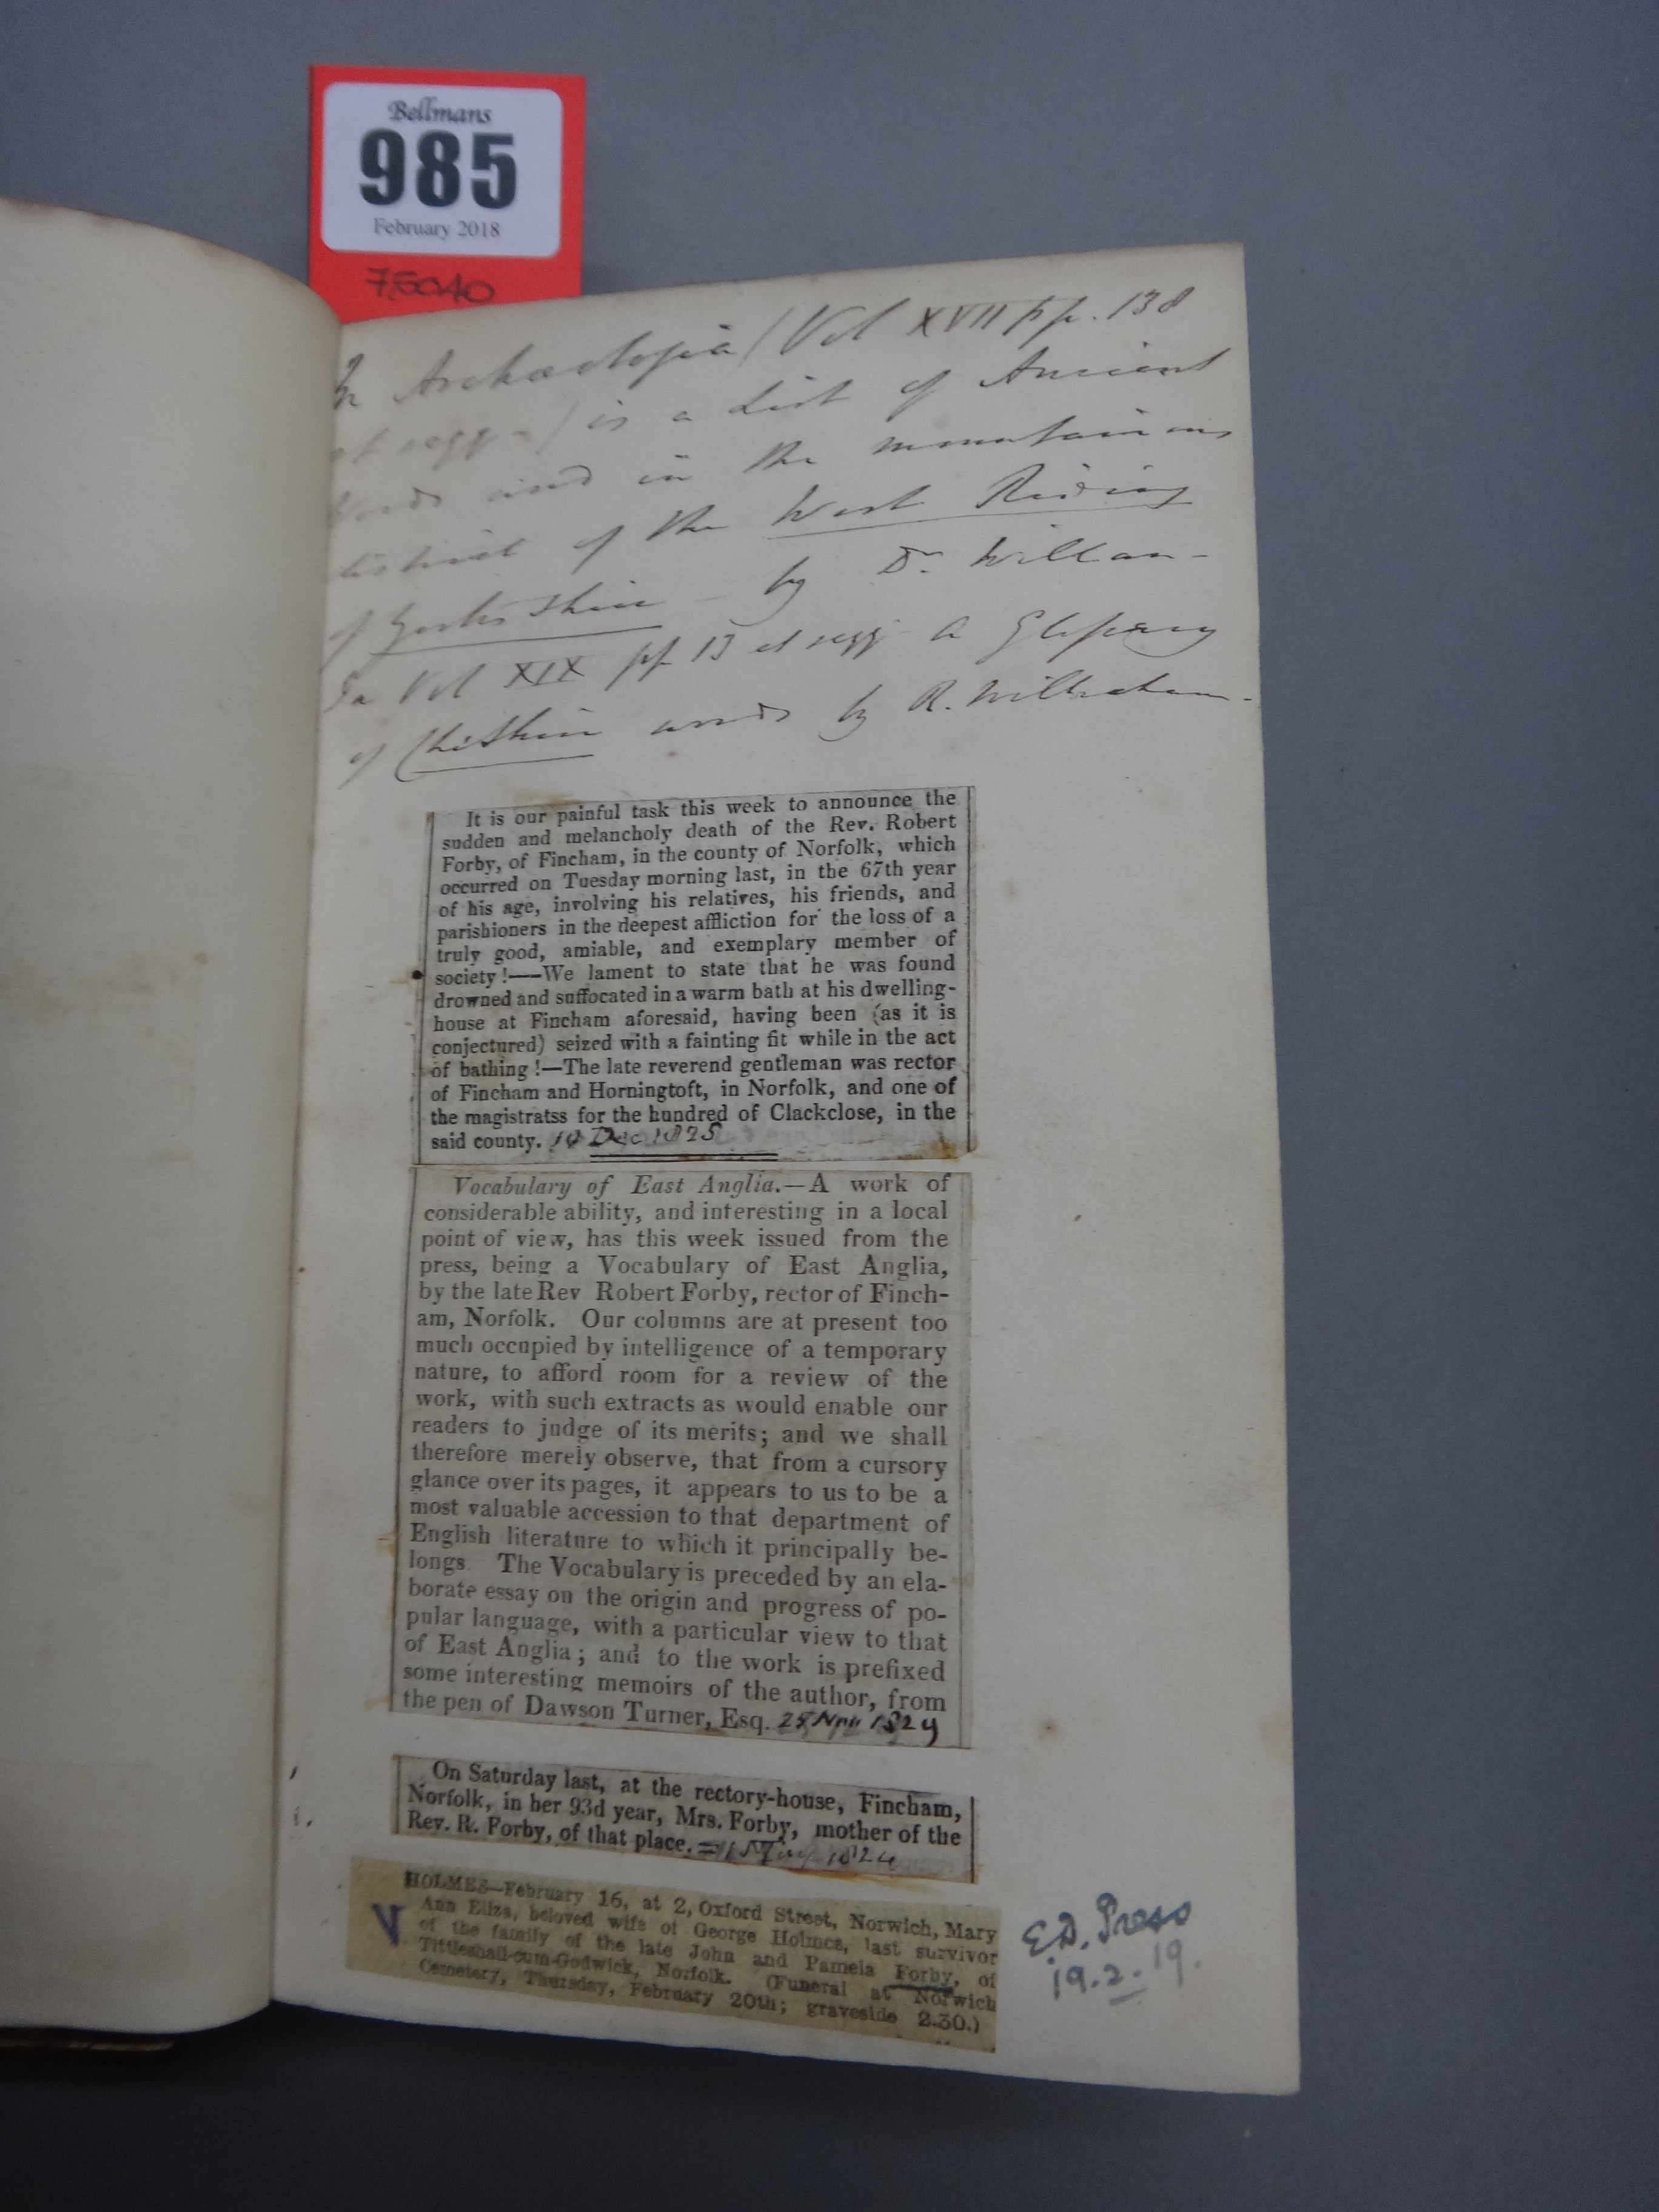 Bellmans
985
February 2018
75040
In Archaeologia (Vol XVII pp. 138
et seqq -) is a List of Ancient
Words used in the mountainous
district of the West Riding
of Yorkshire - by Dr. Willan -
In Vol XIX pp 13 et seqq - a Glossary
of Cheshire words by R. Wilbraham -
It is our painful task this week to announce the
sudden and melancholy death of the Rev. Robert
Forby, of Fincham, in the county of Norfolk, which
occurred on Tuesday morning last, in the 67th year
of his age, involving his relatives, his friends, and
parishioners in the deepest affliction for the loss of a
truly good, amiable, and exemplary member of
society !—We lament to state that he was found
drowned and suffocated in a warm bath at his dwelling-
house at Fincham aforesaid, having been (as it is
conjectured) seized with a fainting fit while in the act
of bathing !—The late reverend gentleman was rector
of Fincham and Horningtoft, in Norfolk, and one of
the magistratss for the hundred of Clackclose, in the
said county. Dec 1825
Vocabulary of East Anglia.—A work of
considerable ability, and interesting in a local
point of view, has this week issued from the
press, being a Vocabulary of East Anglia,
by the late Rev Robert Forby, rector of Finch-
am, Norfolk. Our columns are at present too
much occupied by intelligence of a temporary
nature, to afford room for a review of the
work, with such extracts as would enable our
readers to judge of its merits; and we shall
therefore merely observe, that from a cursory
glance over its pages, it appears to us to be a
most valuable accession to that department of
English literature to which it principally be-
longs. The Vocabulary is preceded by an ela-
borate essay on the origin and progress of po-
pular language, with a particular view to that
of East Anglia; and to the work is prefixed
some interesting memoirs of the author, from
the pen of Dawson Turner, Esq. 1829
On Saturday last, at the rectory-house, Fincham,
Norfolk, in her 93d year, Mrs. Forby, mother of the
Rev. R. Forby, of that place. 1824
HOLMES—February 16, at 2, Oxford Street, Norwich, Mary
Ann Eliza, beloved wife of George Holmes, last survivor
of the family of the late John and Pamela Forby, of
Tittleshall-cum-Godwick, Norfolk. (Funeral at Norwich
Cemetery, Thursday, February 20th; graveside 2.30.)
V
E.D. Press
19.2.19.